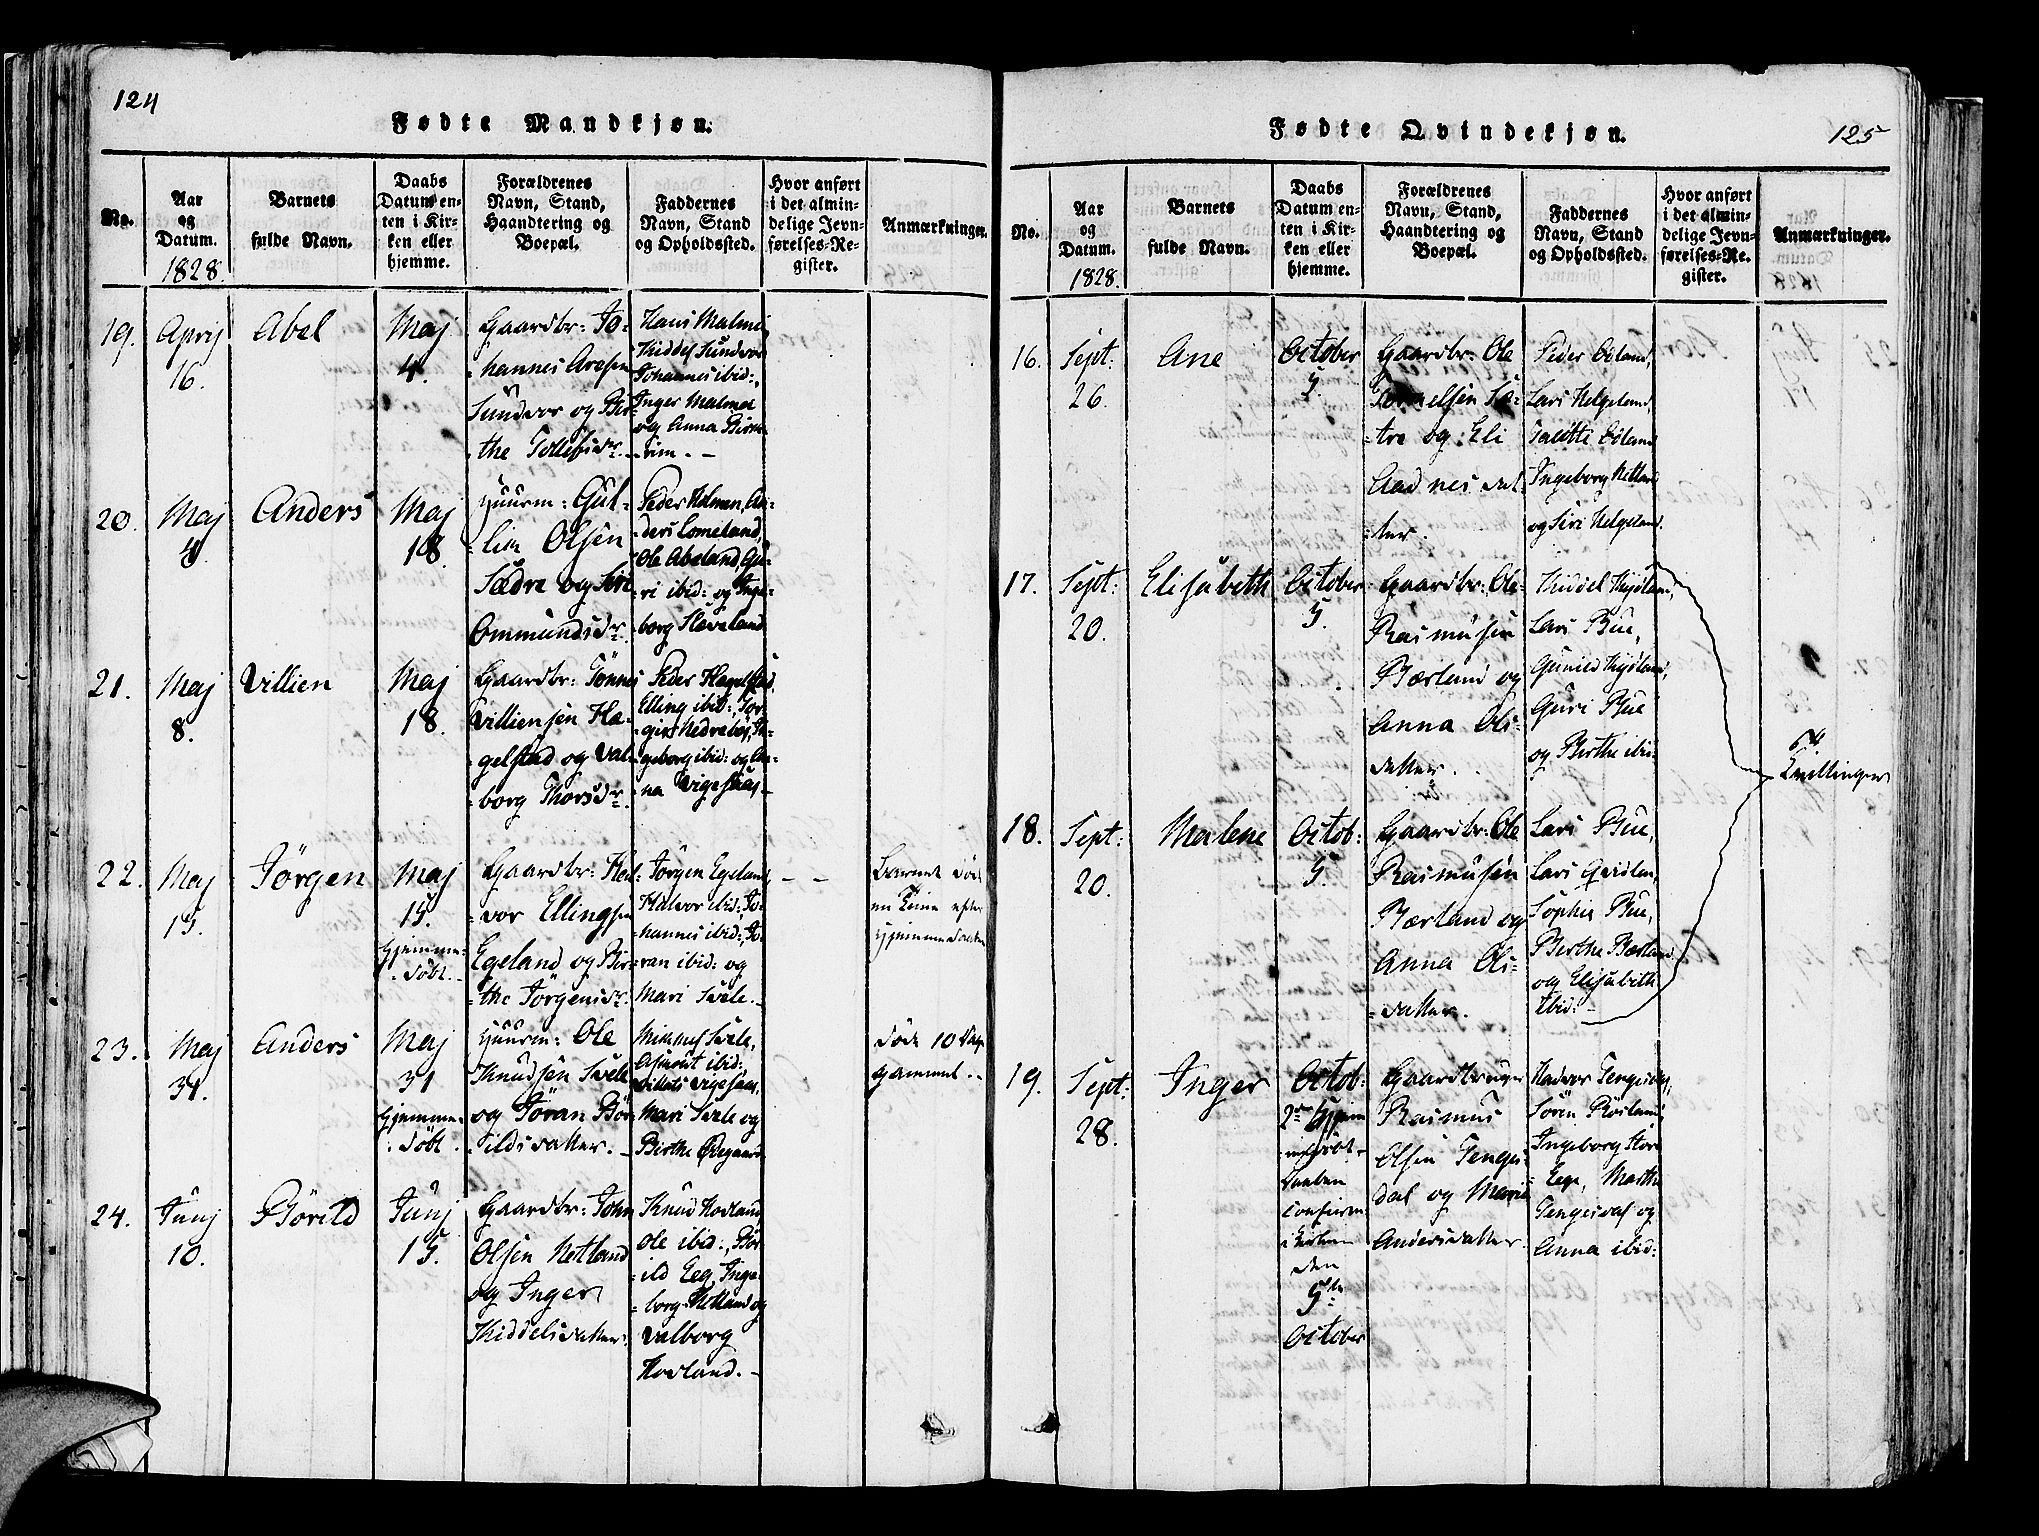 124
Fødte Mandkjøn.
No.
Aar
og
Datum.
1828.
Barnets
fulde Navn.
Daabs
Datum en-
ten i Kir-
ken eller
hjemme.
Forældrenes
Navn, Stand,
Haandtering og
Boepæl.
Faddernes
Navn, Stand
og Opholdssted.
Hvor anført
i det almin-
delige Jevn-
førelses-Re-
gister.
Anmærkninger.
19.
April
16.
Abel
Maj
4.
Gaardbr: Jo-
hannes Aresen
Sundvor og Bir-
the Tollefsdr.
Hans Malmei,
Kiddel Sundvor
Johannes ibid:,
Inger Malmei
og Anna Birke-
rim.
20.
Maj
4.
Anders
Maj
18.
Huusm: Gul-
lik Olsen
Sædre og Siri
Ommundsdr.
Peder Holmen, An-
ders Lomeland,
Ole Abeland, Gu-
ri ibid: og Inge-
borg Slæveland
21.
Maj
8.
Villien
Maj
18.
Gaardbr: Tönnes
Villiensen Hæ-
gelstad og Val-
borg Thorsdr.
Peder Hægelstad,
Elling ibid:, Tor-
giri Nedrebös, In-
geborg ibid: og An-
na Vigesaas
22.
Maj
15.
Jörgen
Maj
15.
Hjemme-
döbt.
Gaardbr: Hal-
vor Ellingsen
Egeland og Bir-
the Jörgensdr.
Jörgen Egeland,
Halvor ibid:, Jo-
hannes ibid:, Jö-
ran ibid: og
Mari Svele.
Barnet döde
en Time efter
Hjemmedaaben
23.
Maj
31.
Anders
Maj
31
Hjemme-
döbt.
Huusm: Ole
Knudsen Svele
og Jöran Bör-
ildsdatter.
Mikkel Svele,
Asmund ibid:
Vigesaas,
Mari Svele og
Birthe Ødegaard
döde 10 Dage
gammel.
24.
Junj
10.
Börild
Junj
15.
Gaardbr: John
Olsen Netland
og Inger
Kiddelsdatter.
Knud Hovland,
Ole ibid:, Bör-
ild Eeg, Inge-
borg Netland og
Valborg
Hovland.
Fødte Qvindekjøn.
125
No.
Aar
og
Datum.
1828.
Barnets
fulde Navn.
Daabs
Datum en-
ten i Kir-
ken eller
hjemme.
Forældrenes
Navn, Stand,
Haandtering og
Boepæl.
Faddernes
Navn, Stand
og Opholdssted.
Hvor anført
i det almin-
delige Jevn-
førelses-Re-
gister.
Anmærkninger.
16.
Sept:
26.
Ane
October
5.
Gaardbr: Ole
Sæ-
tre og Eli
Aadnesdat-
ter.
Peder Ödland,
Lars Helgeland,
Ödland
Ingeborg Netland
og Siri Helgeland.
17.
Sept:
20.
Elisabeth
October
5.
Gaardbr: Ole
Rasmusen
Bærland og
Anna Ols-
datter.
Kiddel Kydland,
Lars Bue,
Gunild Kydland,
Guri Bue
og Birthe ibid:
Tvillinger
18.
Sept:
20.
Malene
Octob:
5.
Gaardbr: Ole
Rasmusen
Bærland og
Anna Ols-
datter.
Lars Bue,
Lars
Sophie Bue,
Birthe Bærland
og Elisabeth
ibid:
19.
Sept:
28.
Inger
Octob:
2den hjem-
medöbt,
Daaben
confirm:
i Kirken
den
5te
October
Gaardbruger
Rasmus
Olsen Tenges-
dal og Marie
Andersdatter.
Hadvor Tengesdal,
Sören Röisland,
Ingeborg Store
Eege, Marthe
Tengesdal og
Anna ibid: